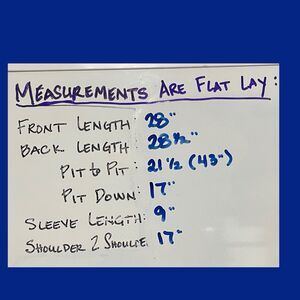 MEASUREMENTS ARE FLAT LAY:
FRONT LENGTH: 28"
BACK LENGTH: 28 1/2"
PIT to PIT: 21 1/2 (43")
PIT DOWN: 17"
SLEEVE LENGTH: 9"
SHOULDER 2 SHOULDE: 17"